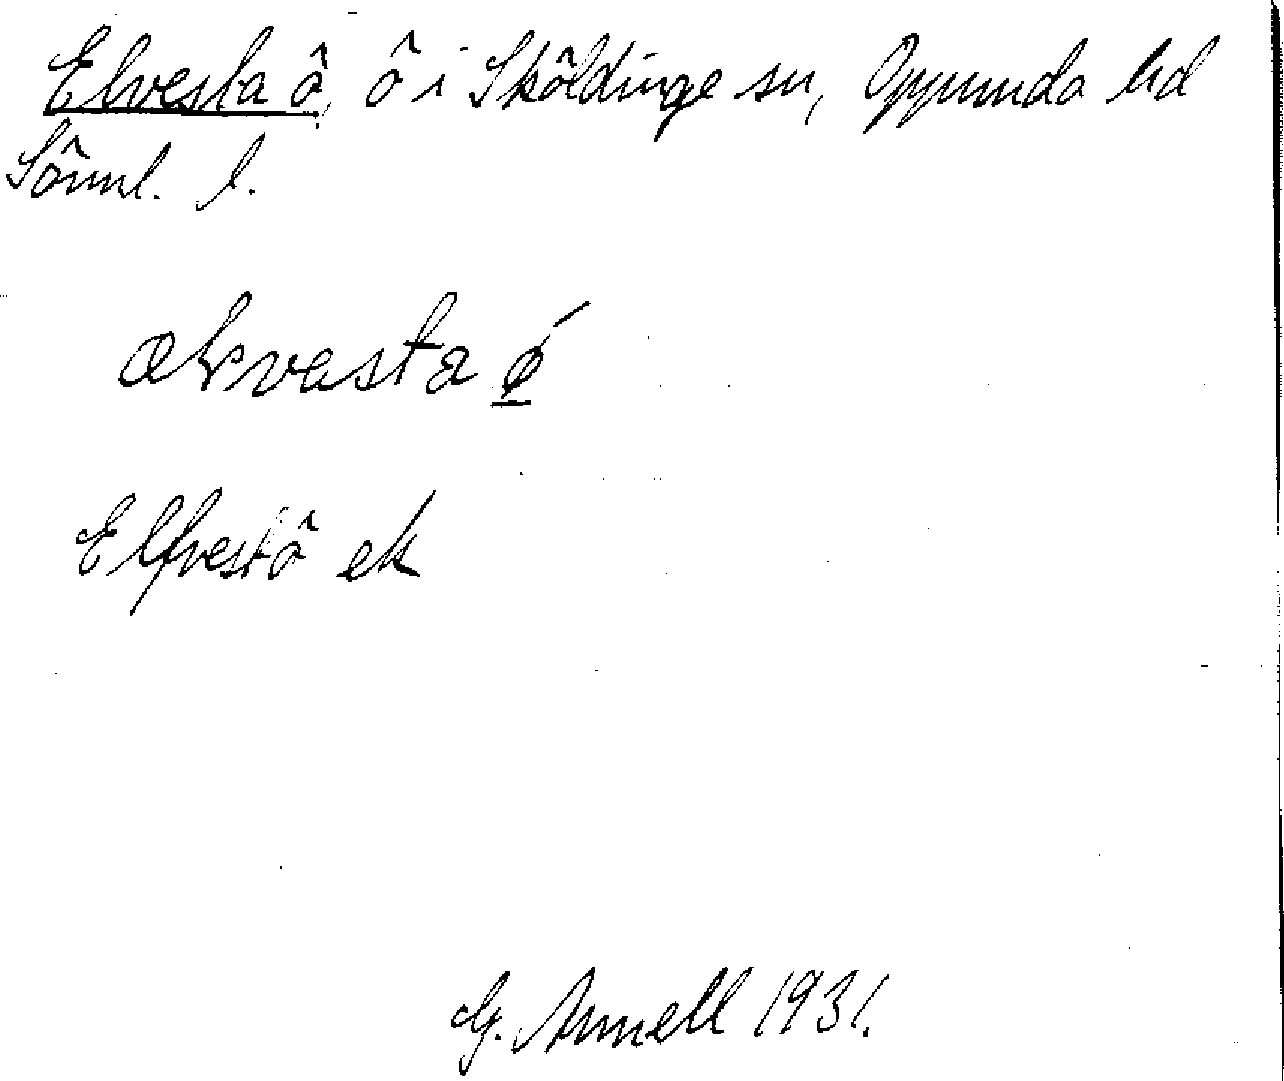 Elvesta ö, ö i Sköldinge sn, Oppunda hd
Sörml. l.
ælvasta ǿ
Elfvestö ek
G. Annell 1931.